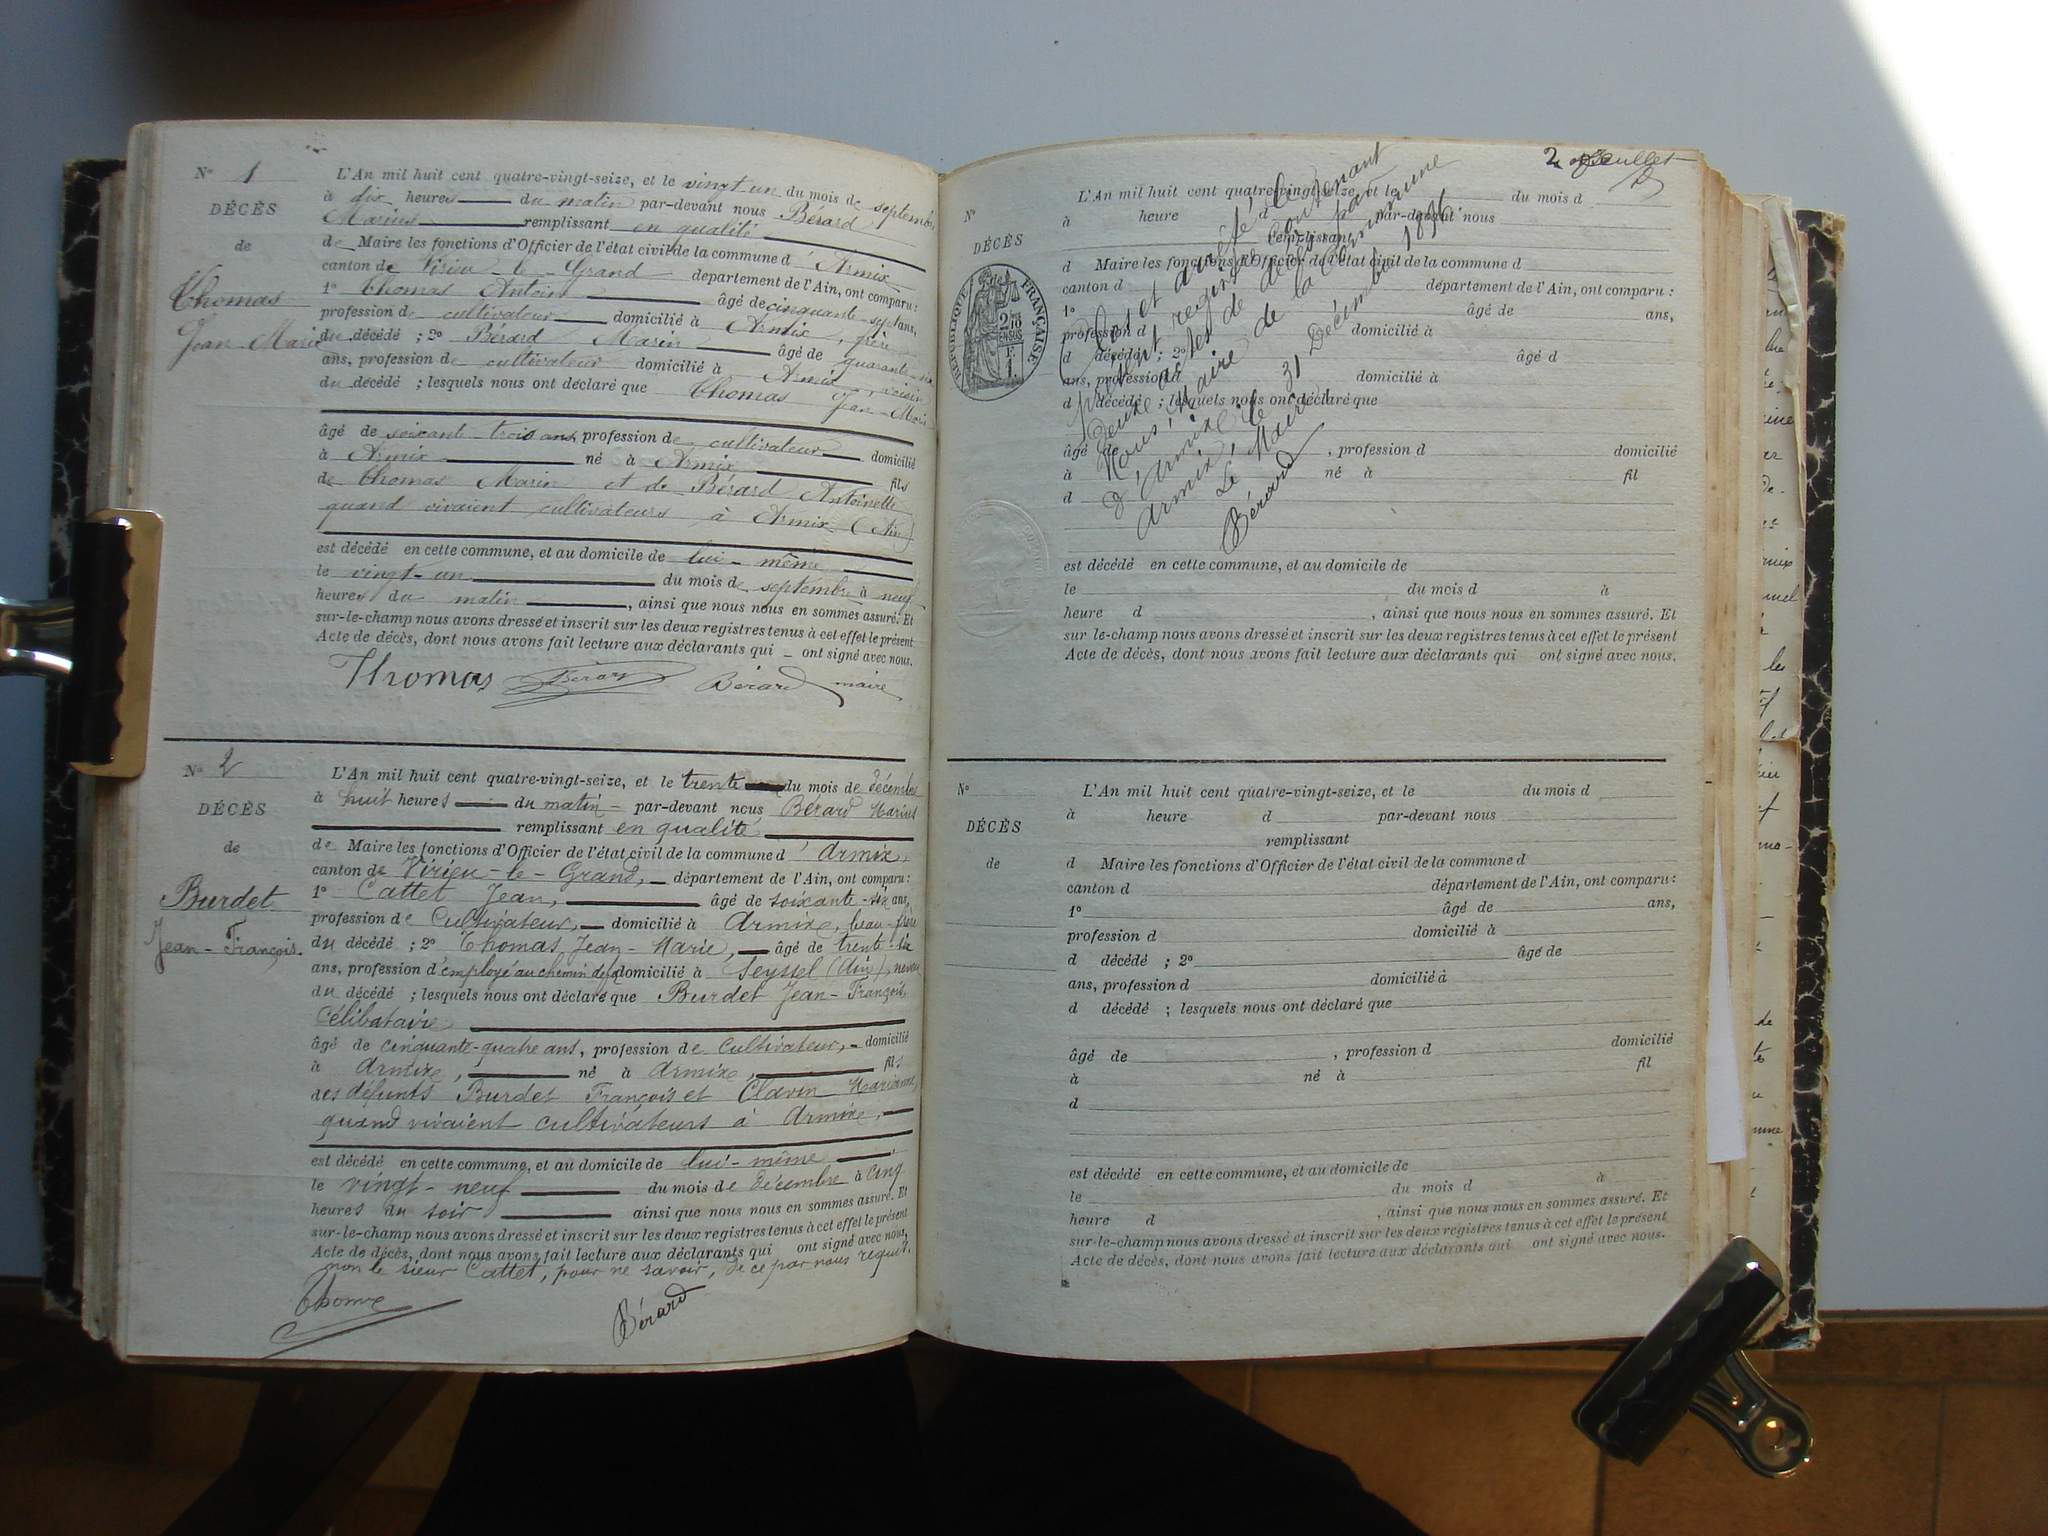 N° 1
DÉCÈS
de
Thomas
Jean-Marie
L'An mil huit cent quatre-vingt-seize, et le vingt un du mois de septembre
à dix heures du matin par-devant nous Bérard
Marius remplissant en qualité
de Maire les fonctions d'Officier de l'état civil de la commune d'Armix
canton de Virieu-le-Grand département de l'Ain, ont comparu :
1° Thomas Antoine âgé de cinquante-sept ans,
profession de cultivateur domicilié à Armix, frère
du décédé ; 2° Bérard Marin âgé de quarante-six
ans, profession de cultivateur domicilié à Armix, voisin
du décédé ; lesquels nous ont déclaré que Thomas Jean-Marie
âgé de soixante-trois ans, profession de cultivateur domicilié
à Armix né à Armix fils
de Thomas Marin et de Bérard Antoinette
quand vivaient cultivateurs à Armix (Ain)
est décédé en cette commune, et au domicile de lui-même
le vingt-un du mois de septembre à neuf
heures du matin, ainsi que nous nous en sommes assuré. Et
sur-le-champ nous avons dressé et inscrit sur les deux registres tenus à cet effet le présent
Acte de décès, dont nous avons fait lecture aux déclarants qui ont signé avec nous.
Thomas Bérard Bérard maire
N° 2
DÉCÈS
de
Burdet
Jean-François.
L'An mil huit cent quatre-vingt-seize, et le trente du mois de Décembre
à huit heures du matin par-devant nous Bérard Marius
remplissant en qualité
de Maire les fonctions d'Officier de l'état civil de la commune d'Armix,
canton de Virieu-le-Grand, département de l'Ain, ont comparu :
1° Cattet Jean, âgé de soixante-six ans,
profession de Cultivateur, domicilié à Armix, beau-frère
du décédé ; 2° Thomas Jean-Marie, âgé de trente-six
ans, profession d'employé au chemin de f. domicilié à Seyssel (Ain), neveu
du décédé ; lesquels nous ont déclaré que Burdet Jean-François,
Célibataire
âgé de cinquante-quatre ans, profession de Cultivateur, domicilié
à Armix, né à Armix, fils
des défunts Burdet François et Clavin Marianne,
quand vivaient cultivateurs à Armix,
est décédé en cette commune, et au domicile de lui-même
le vingt-neuf du mois de Décembre à Cinq
heures du soir ainsi que nous nous en sommes assuré. Et
sur-le-champ nous avons dressé et inscrit sur les deux registres tenus à cet effet le présent
Acte de décès, dont nous avons fait lecture aux déclarants qui ont signé avec nous,
non le sieur Cattet, pour ne savoir, de ce par nous requis.
Thomas
Bérard
2e feuillet
N°
DÉCÈS
RÉPUBLIQUE FRANÇAISE
2/10 EN SUS
F. 1
L'An mil huit cent quatre-vingt-seize, et le du mois d
à heure d par-devant nous
remplissant
d Maire les fonctions d'Officier de l'état civil de la commune d
canton d département de l'Ain, ont comparu :
1° âgé de ans,
profession d domicilié à
d décédé ; 2° âgé d
ans, profession d domicilié à
d décédé ; lesquels nous ont déclaré que
âgé de , profession d domicilié
à né à fil
d
est décédé en cette commune, et au domicile de
le du mois d à
heure d , ainsi que nous nous en sommes assuré. Et
sur le-champ nous avons dressé et inscrit sur les deux registres tenus à cet effet le présent
Acte de décès, dont nous avons fait lecture aux déclarants qui ont signé avec nous.
Clos et arrêté le
présent registre contenant
deux actes de décès, par
Nous, Maire de la Commune
d'Armix, le 31 Décembre 1896
Armix,
Le Maire
Bérard
N°
DÉCÈS
de
L'An mil huit cent quatre-vingt-seize, et le du mois d
à heure d par-devant nous
remplissant
d Maire les fonctions d'Officier de l'état civil de la commune d
canton d département de l'Ain, ont comparu :
1° âgé de ans,
profession d domicilié à
d décédé ; 2° âgé de
ans, profession d domicilié à
d décédé ; lesquels nous ont déclaré que
âgé de , profession d domicilié
à né à fil
d
est décédé en cette commune, et au domicile de
le du mois d à
heure d , ainsi que nous nous en sommes assuré. Et
sur-le-champ nous avons dressé et inscrit sur les deux registres tenus à cet effet le présent
Acte de décès, dont nous avons fait lecture aux déclarants qui ont signé avec nous.